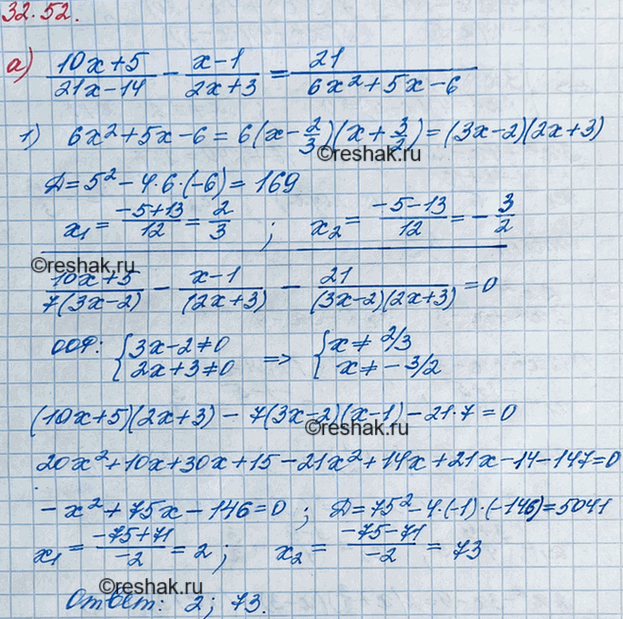 32.52.
а) (10x+5)/(21x-14) - (x-1)/(2x+3) = 21/(6x²+5x-6)
1) 6x²+5x-6=6(x-2/3)(x+3/2)=(3x-2)(2x+3)
©reshak.ru
Д=5²-4·6·(-6)=169
x₁=(-5+13)/12=2/3; x₂=(-5-13)/12=-3/2
©reshak.ru
(10x+5)/(7(3x-2)) - (x-1)/((2x+3)) - 21/((3x-2)(2x+3))=0
ООФ: {3x-2≠0 => {x≠2/3
2x+3≠0 x≠-3/2
(10x+5)(2x+3)-7(3x-2)(x-1)-21·7=0
©reshak.ru
20x²+10x+30x+15-21x²+14x+21x-14-147=0
-x²+75x-146=0; Д=75²-4·(-1)·(-146)=5041
x₁=(-75+71)/-2=2; x₂=(-75-71)/-2=73
©reshak.ru
Ответ: 2; 73.